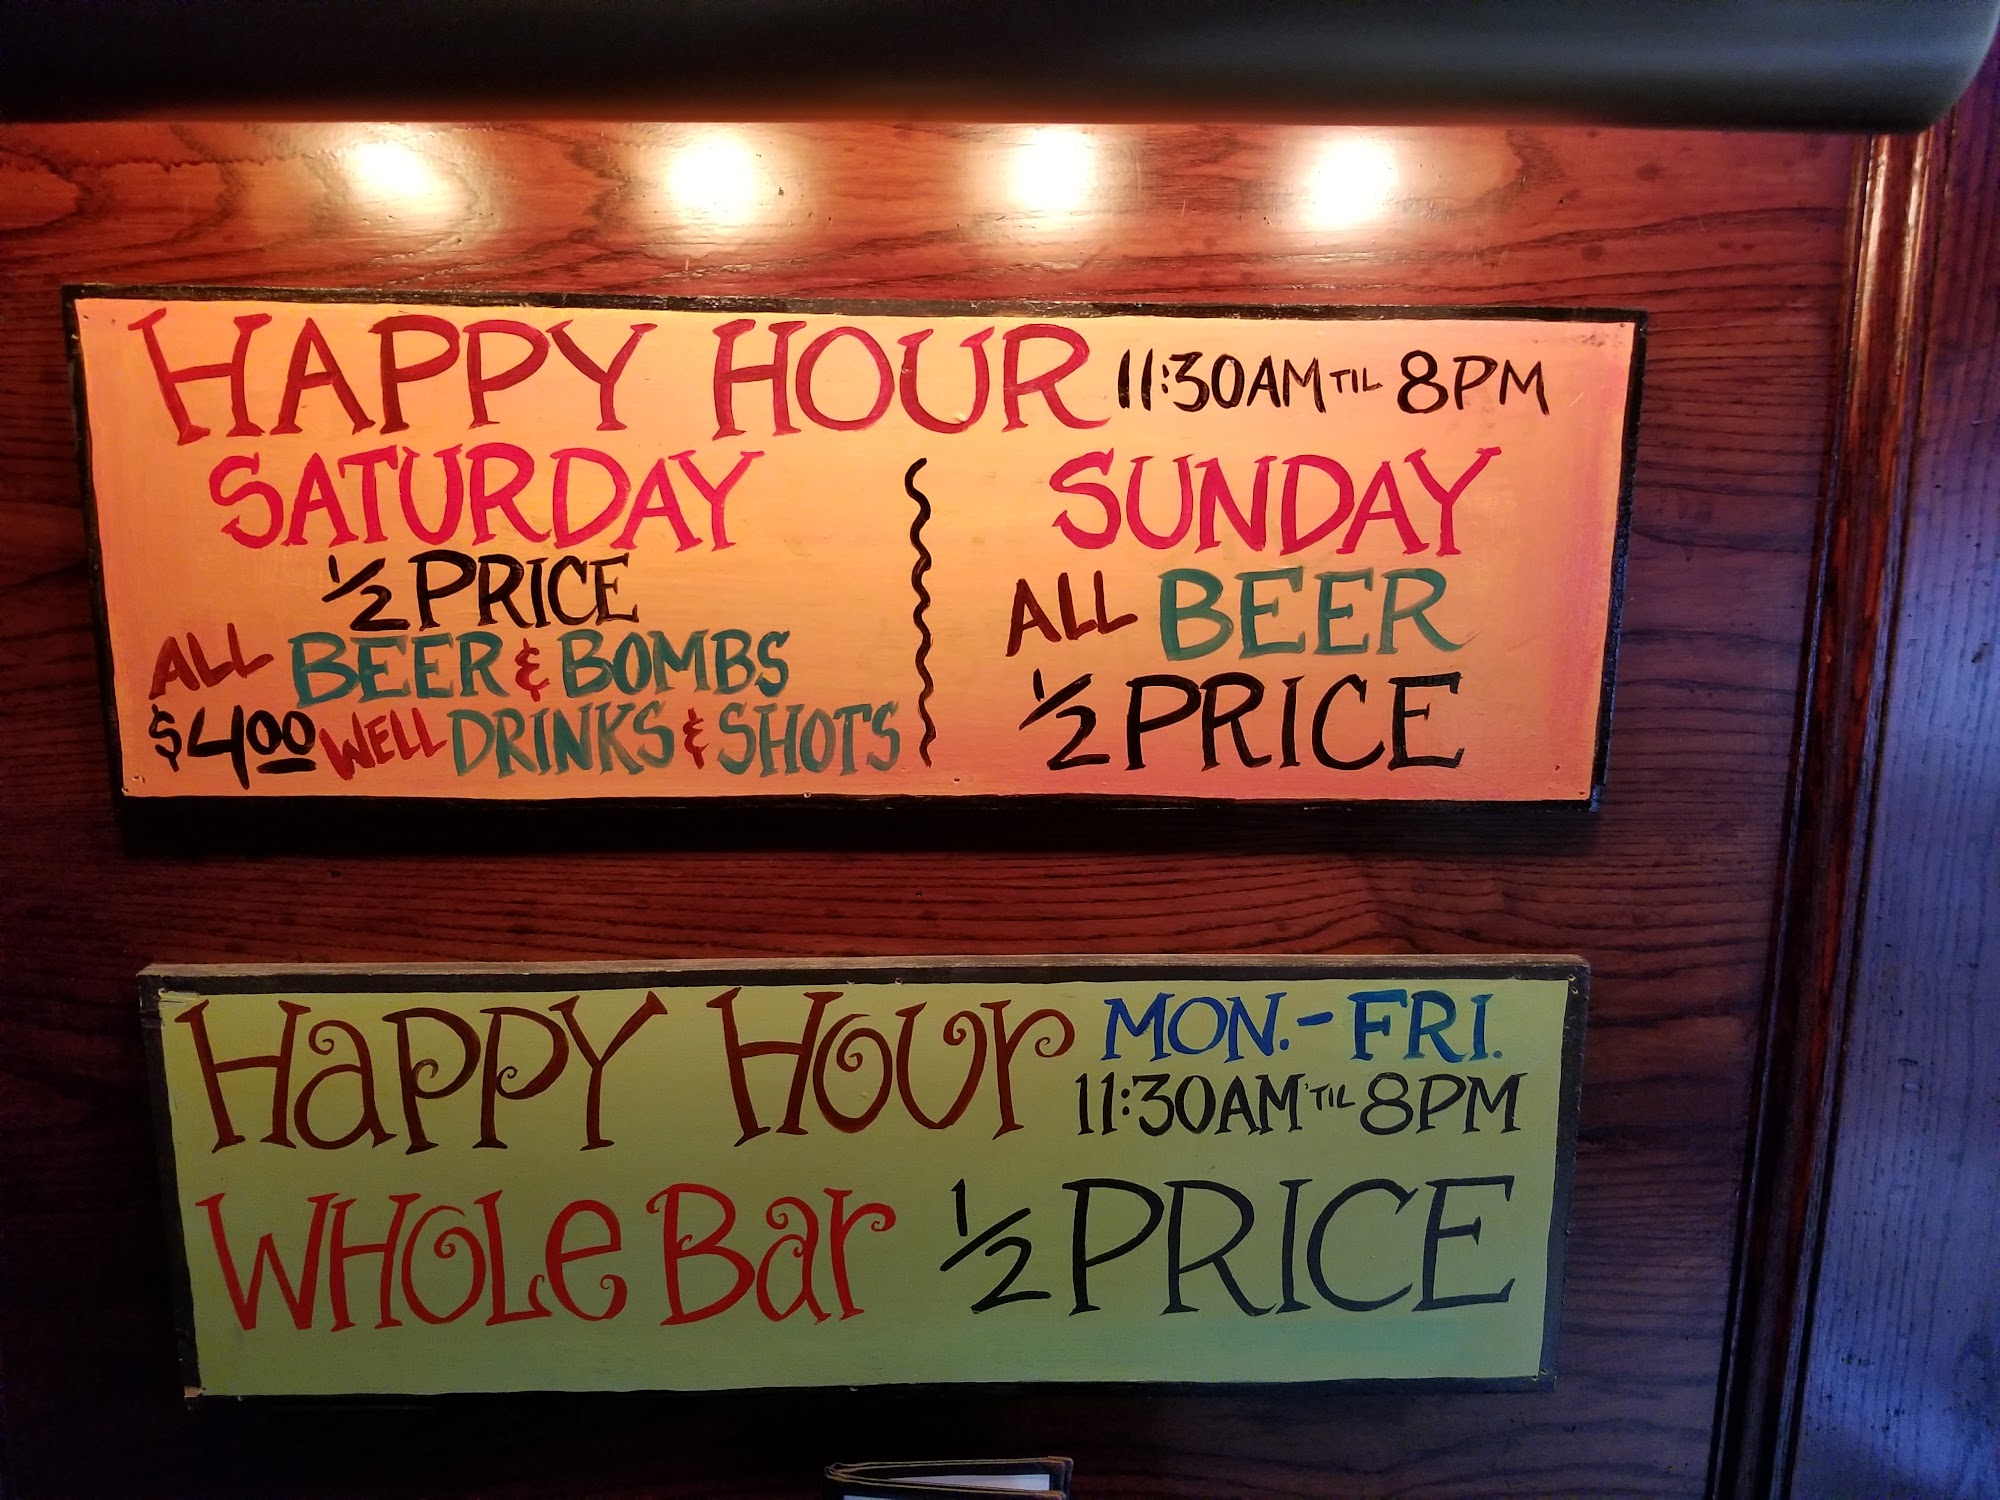 HAPPY HOUR 11:30AM TIL 8PM
SATURDAY
1/2 PRICE
ALL BEER & BOMBS
$4.00 WELL DRINKS & SHOTS
SUNDAY
ALL BEER
1/2 PRICE
HaPPY HOUr MON.-FRI.
11:30AM 'TIL 8PM
WHOLe Bar 1/2 PRICE